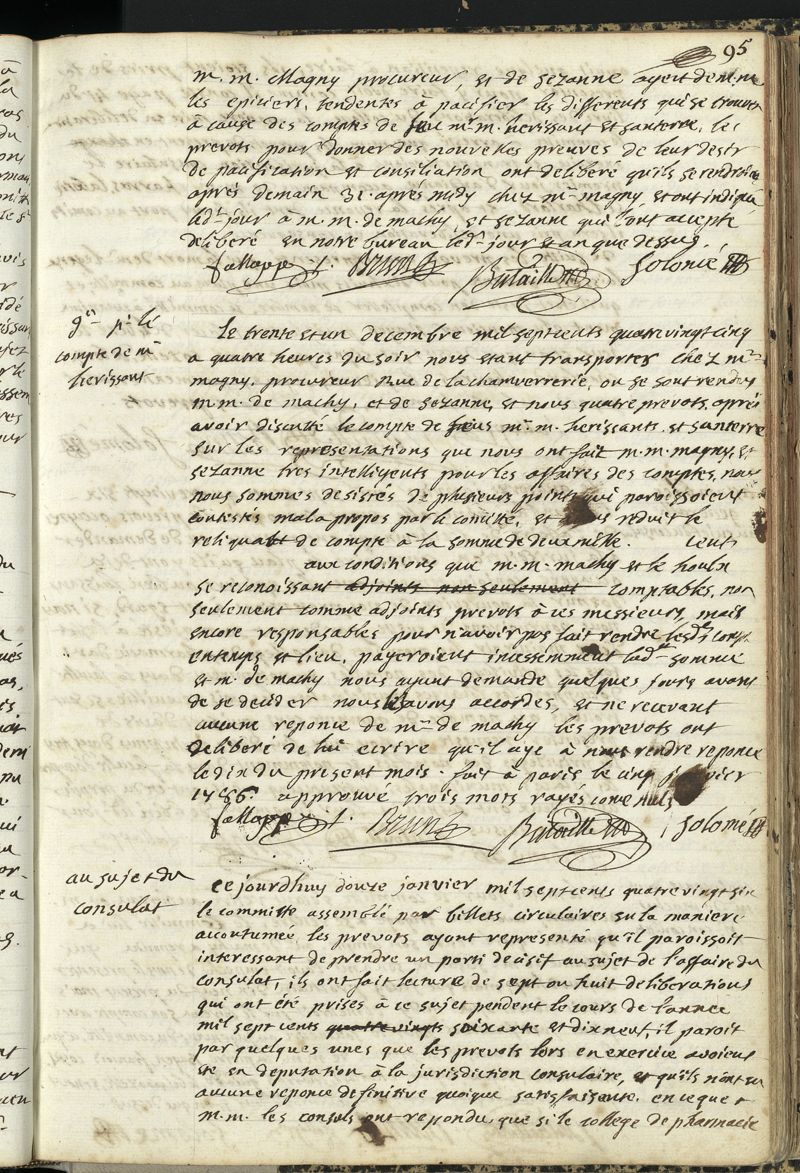 95
m. m. Magny procureur, et de sezanne ayent dem. m.
les epiciers, tendentes à pacifier les differents qui se trouvent
à cause des comptes de feu mrs. m. herissant et santerre, les
prevots pour donner des nouvelles preuves de leur desir
de pacification et consiliation ont deliberé qu'ils se rendroient
après demain 31. après midy chez mr. magny, et ont indiqué
led. jour à m. m. de machy, et sezanne qui l'ont accepté
deliberé en notre bureau led. jour et an que dessus.
Brun Bataille Solomé
compte de mr.
herissant
Le trente et un decembre mil sept cents quatre vingt cinq
a quatre heures du soir nous etant transportes chez mr.
magny, procureur rue de la chanverrerie, ou se sont rendus
m. m. de machy, et de sezanne, et nous quatre prevots, après
avoir discuté le compte de feus mr. m. herissants et santerre
sur les representations que nous ont fait m. m. magny, et
sezanne tres intelligents pour les affaires des comptes, nous
nous sommes desistés de plusieurs points qui paroissoient
contestés mal a propos par le comitté, et avons reduit le
reliquat de compte à la somme de deux mille. cents
aux conditions que m. m. machy et le houlx
se reconoissant adjoints non seulement comptables, non
seulement comme adjoints prevots à ces messieurs, mais
encore responsables pour n'avoir pas fait rendre lesds. compt.
entemps et lieu, payeroient incessemment lad. somme
et m. de machy nous ayant demandé quelques jours avant
de se decider nous les avons accordes, et ne recevant
aucune reponce de mr. de machy les prevots ont
deliberé de lui ecrire qu'il aye à nous rendre reponce
le dix du present mois. fait à paris le cinq janvier
1786. approuvé trois mots rayés come nuls
Brun Bataille Solomé
au sujet du
consulat
ce jourdhuy douze janvier mil sept cents quatre vingt six
le committe assemblé par billets circulaires en la maniere
accoutumée les prevots ayant representé qu'il paroissoit
interessant de prendre un parti decisif au sujet de l'affaire du
consulat, ils ont fait lecture de sept ou huit deliberations
qui ont été prises à ce sujet pendent le cours de l'année
mil sept cents quatre vingts soixante et dix neuf, il paroit
par quelques unes que les prevots lors en exercice avoient
été en deputation à la jurisdiction consulaire, et qu'ils n'ont eu
aucune reponce definitive quoique satisfaisente. en ce que
m. m. les consuls ont repondu que si le college de pharmacie